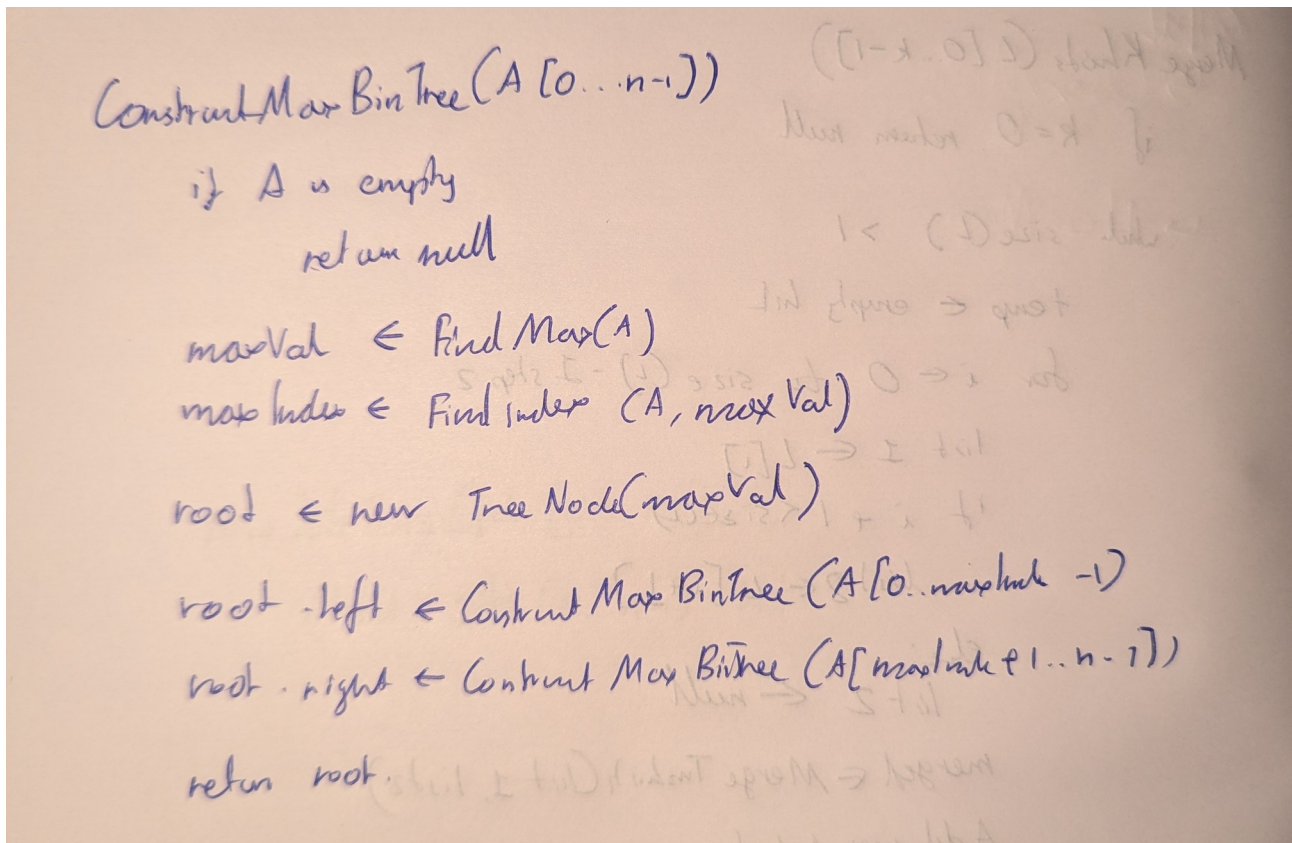 ConstructMaxBinTree(A[0...n-1])
if A is empty
return null
maxVal ← FindMax(A)
maxIndex ← FindIndex (A, maxVal)
root ← new TreeNode(maxVal)
root.left ← ConstructMaxBinTree (A[0..maxIndex -1)
root.right ← Construct Max BinTree (A[maxIndex+1..n-1])
return root.